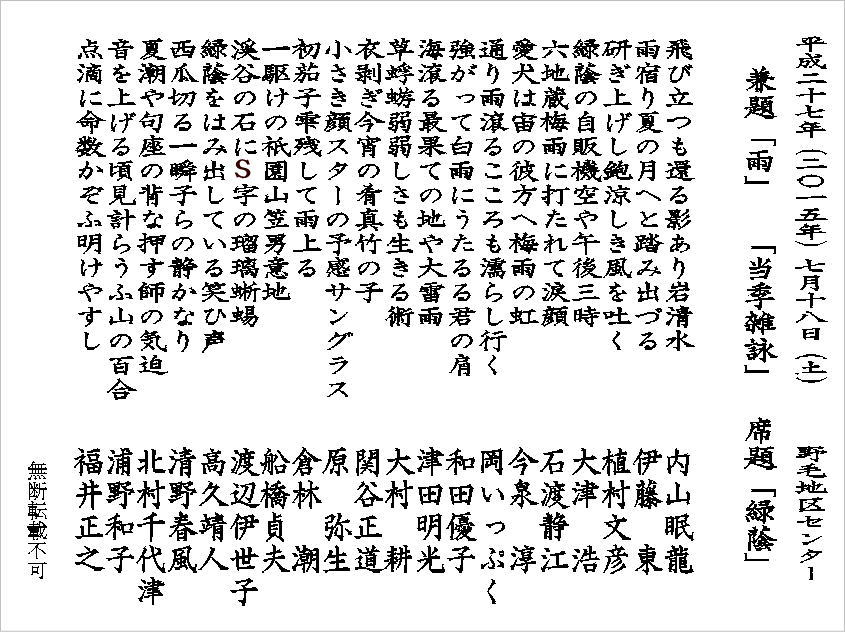 平成二十七年（二〇一五年）七月十八日（土）　野毛地区センター
兼題「雨」　「当季雑詠」　席題「緑蔭」
飛び立つも還る影あり岩清水　内山眠龍
雨宿り夏の月へと踏み出づる　伊藤　東
研ぎ上げし鮑涼しき風を吐く　植村文彦
緑蔭の自販機空や午後三時　大津　浩
六地蔵梅雨に打たれて涙顔　石渡静江
愛犬は宙の彼方へ梅雨の虹　今泉　淳
通り雨滾るこころも濡らし行く　岡いっぷく
強がって白雨にうたるる君の肩　和田優子
海滾る最果ての地や大雷雨　津田明光
草蜉蝣弱弱しさも生きる術　大村　耕
衣剥ぎ今宵の肴真竹の子　関谷正道
小さき顔スターの予感サングラス　原　弥生
初茄子雫残して雨上る　倉林　潮
一駆けの祇園山笠男意地　船橋貞夫
渓谷の石にS字の瑠璃蜥蜴　渡辺伊世子
緑蔭をはみ出している笑ひ声　高久靖人
西瓜切る一瞬子らの静かなり　清野春風
夏潮や句座の背な押す師の気迫　北村千代津
音を上げる頃見計らうふ山の百合　浦野和子
点滴に命数かぞふ明けやすし　福井正之
無断転載不可